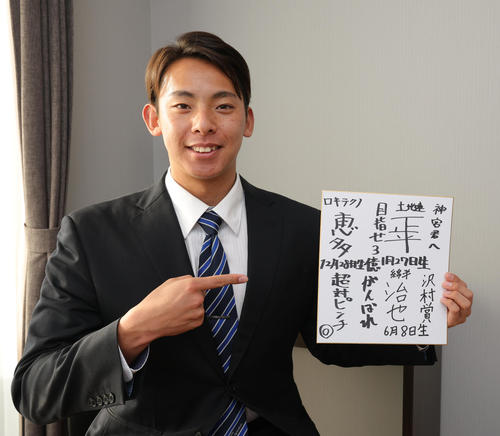 神宮君へ
沢村賞
一平
1月27日生
綿半
治也
6月8日生
目指せ3億がんばれ
ロキテクノ
恵多
12月28日生
ピンチ